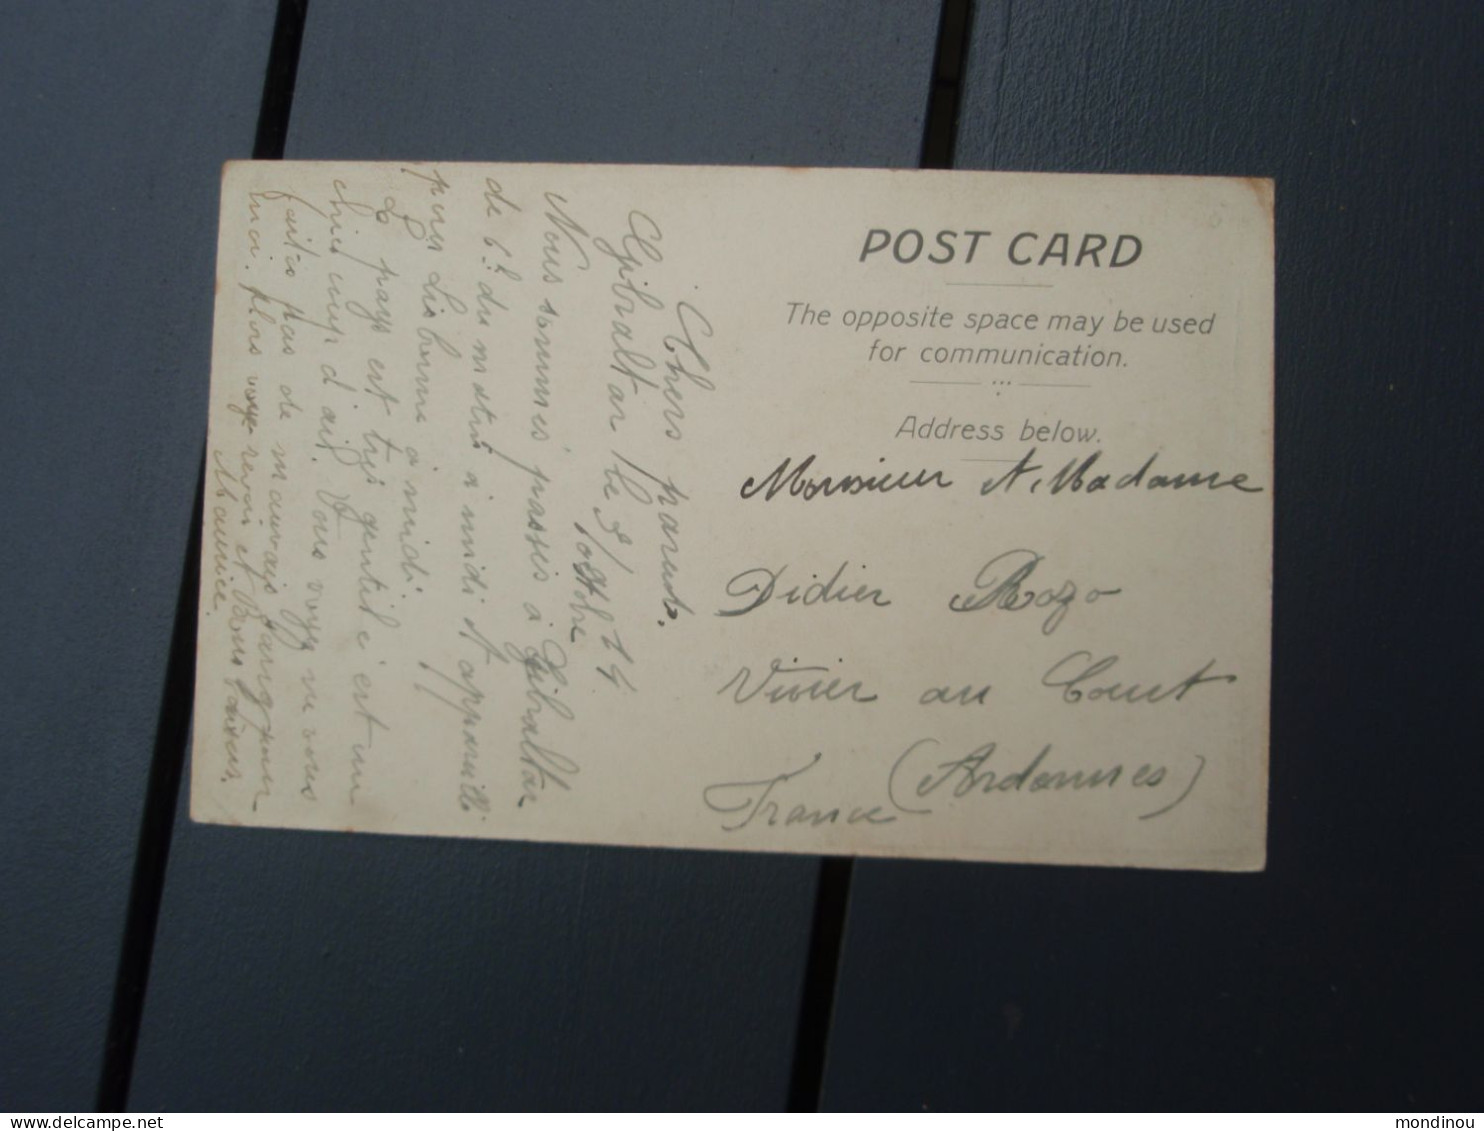 POST CARD
The opposite space may be used
for communication.
Address below.
Monsieur et Madame
Didier Rozo
Vivier au Court
(Ardennes)
France
Chers parents.
Gibraltar le 5/ 14
octobre
Nous sommes passés à Gibraltar
de 6h du matin à midi et appareille
pour Lisbonne à midi.
Le pays est très gentil c'est un
chic coup d'œil. Vous voyez
faites pas de mauvais sang pour
moi. plors revoir et Bons baisers
Maurice.
delcampe.net
mondinou